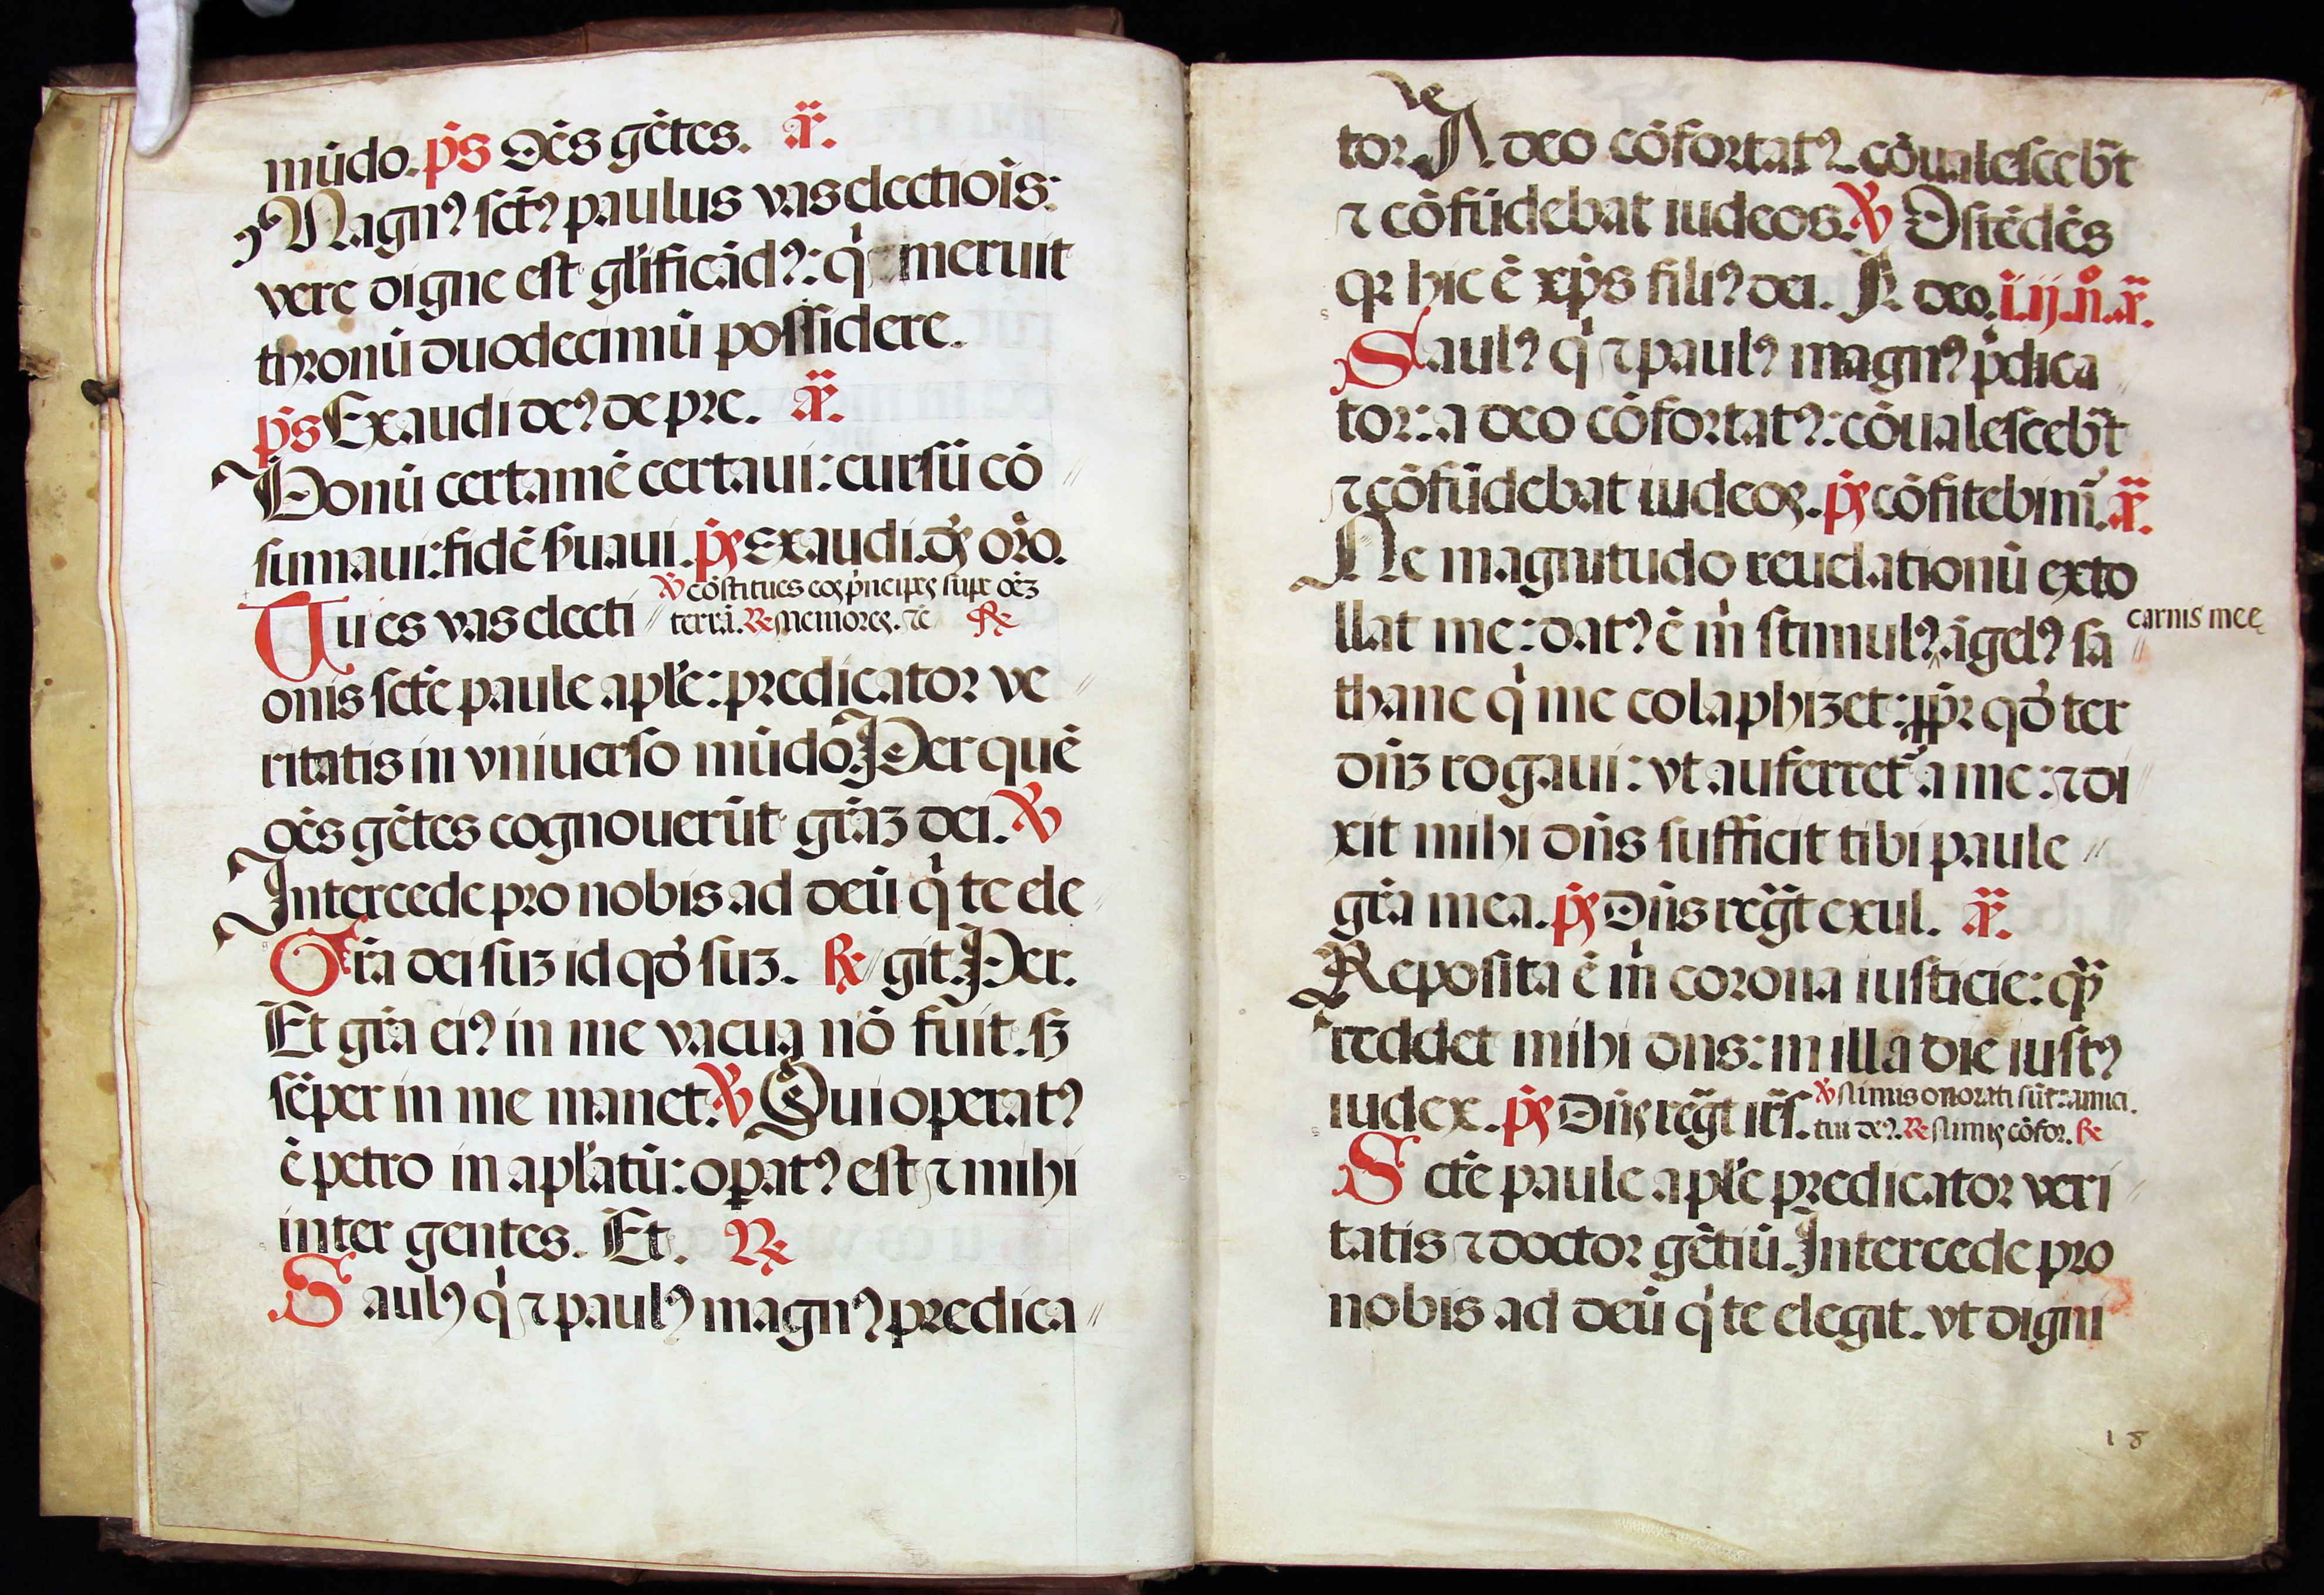 mūdo. p̄s Oēs gētes. a᷒.
Magnꝰ sct̄ꝰ paulus vas electiōis:
vere digne est gl̄ificādꝰ: q̇ meruit
thronū duodecimū possidere.
p̄s Exaudi deꝰ de pre. a᷒.
Bonū certamē certaui: cursū cō
sumaui: fidē ẜuaui. p̄s Exaudi. ds̄ orō.
℣ cōstitues eos p̄ncipes sup oēꝫ
Tu es vas electi terrā. ℟ Memores. ⁊c ℟
onis sctē paule apl̄e: predicator ve
ritatis in vniuerso mūdo Per quē
oēs gētes cognouerūt gr̄aꝫ dei. ℣
Intercede pro nobis ad deū q̇ te ele
Gr̄a dei suꝫ id qđ suꝫ. ℟ git. Per.
Et gr̄a eiꝰ in me vacua nō fuit. sꝫ
sēper in me manet. ℣ Qui operatꝰ
ē petro in apl̄atū: opatꝰ est ⁊ mihi
inter gentes. Et. ℟
Saulꝰ q̇ ⁊ paulꝰ magnꝰ predica
tor. A deo cōfortatꝰ. cōualescebāt
⁊ cōfūdebat iudeos. ℣ Ostēdēs
qꝛ hic ē xp̄s filiꝰ dei. A deo. i. ij. n̊. a᷒.
Saulꝰ q̇ ⁊ paulꝰ magnꝰ p̄dica
tor: a deo cōfortatꝰ: cōualescebāt
⁊ cōfūdebat iudeos. p̄s cōfitebim̄. a᷒.
Ne magnitudo reuelationū exto
llat me: datꝰ ē ṁ stimulꝰ. āgelꝰ sa carnis mee
thane q̇ me colaphizet: ꝓpꝛ qđ ter
dn̄ꝫ rogaui: vt auferret᷑ a me: ⁊ di
xit mihi dn̄s sufficit tibi paule
gr̄a mea. p̄s Dn̄s regt exul. a᷒.
Reposita ē ṁ corona iusticie: q̄
reddet mihi dns: in illa die iustꝰ
iudex. p̄s Dn̄s regt irs. ℣ Nimis onorati sūt: amici.
tui deꝰ. ℟ Nimis cōfor. ℟
Sctē paule apl̄e predicator veri
tatis ⁊ doctor gētiū. Intercede pro
nobis ad deū q̇ te elegit. vt digni
18